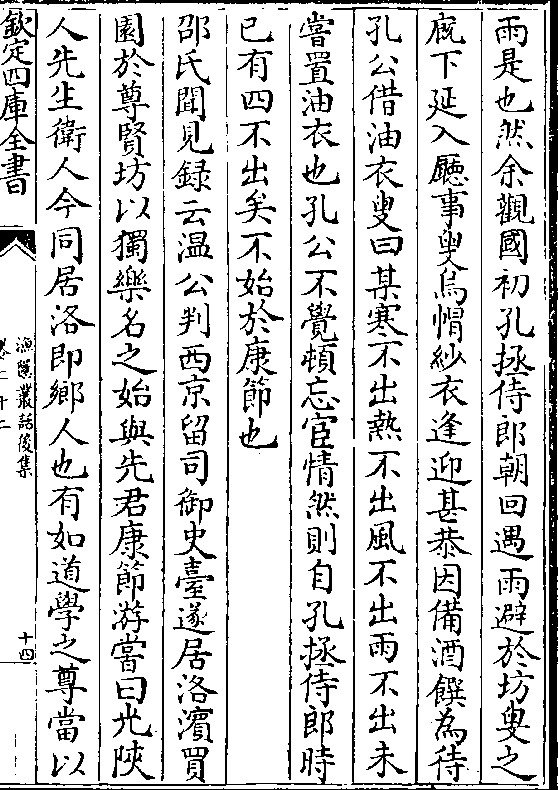 雨是也然余觀國初孔拯侍郎朝回遇雨避於坊叟之
廡下延入廳事叟烏帽紗衣逢迎甚恭因備酒饌為待
孔公借油衣叟曰某寒不出熱不出風不出雨不出未
嘗置油衣也孔公不覺頓忘宦情然則自孔拯侍郎時
已有四不出矣不始於康節也
邵氏聞見録云温公判西京留司御史臺遂居洛濱買
園於尊賢坊以獨樂名之始與先君康節游嘗曰光陝
人先生衛人今同居洛即鄉人也有如道學之尊當以
欽定四庫全書
漁隱叢話後集
卷二十二
十四